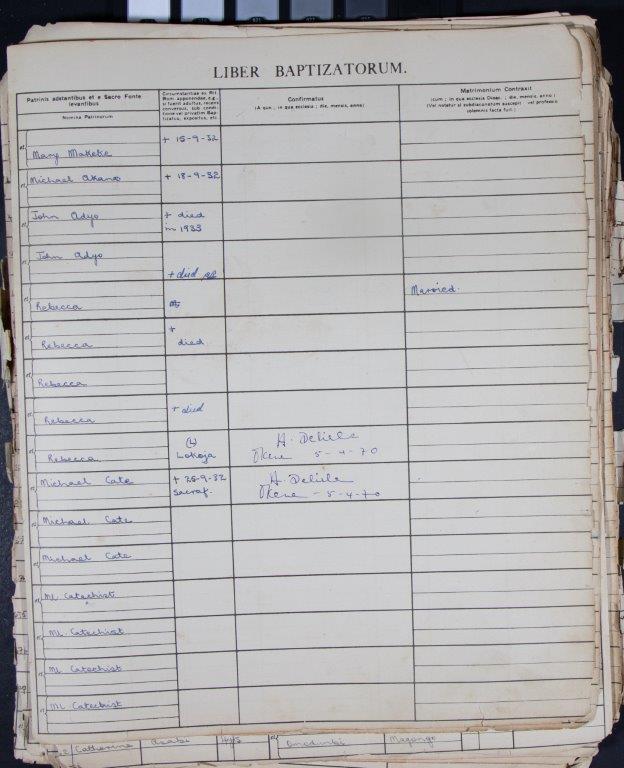 LIBER BAPTIZATORUM.
Patrinis adstantibus et e Sacro Fonte
levantibus
Nomina Patrinorum
Circumstantiae ex Rit.
Rom apponendae, e.g.,
si fuerit adultus, recens
conversus, sub condi-
tione vel privatim Bap-
tizatus, expositus, etc
Confirmatus
(A quo, ; in qua ecclesia ; die, mensis, anno)
Matrimonium Contraxit
(cum ; in qua ecclesia Dioec. ; die, mensis, anno)
(Vel notetur si subdiaconatum suscepit vel professio
solemnis facta fuit.)
et Mary Makeke + 15-9-32
et Michael Akano + 18-9-32
et John Adyo + died
in 1933
et John Adyo
+ died
et Rebecca Married.
et Rebecca +
died
et Rebecca
et Rebecca + died
et Rebecca (L)
Lokoja H. Delisle
Okene 5-4-70
et Michael Cate + 25-9-32
Sacraf. H. Delisle
Okene - 5-4-70
et Michael Cate
et Michael Cate
et Ml. Catechist
et Ml. Catechist
et Ml. Catechist
et Ml. Catechist
Catherine Asabi et Omodunbi Magongo